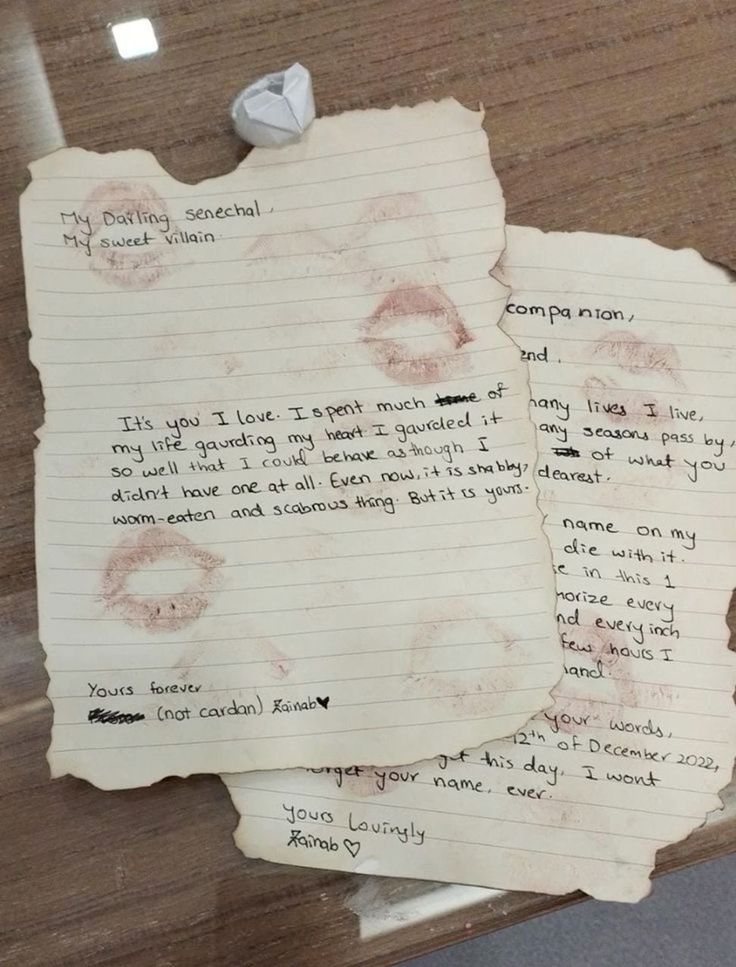 My Darling senechal,
My sweet villain.
It's you I love. I spent much of
my life gaurding my heart I gaurded it
so well that I could behave as though I
didn't have one at all. Even now, it is shabby,
worm-eaten and scabrous thing. But it is yours.
Yours forever
(not cardan) Zainab♥
companion,
end,
many lives I live,
any seasons pass by,
of what you
dearest.
name on my
die with it.
in this 1
morize every
nd every inch
few hours I
hand.
your words,
12th of December 2022,
this day, I wont
your name, ever.
yours Lovingly
Zainab ♡